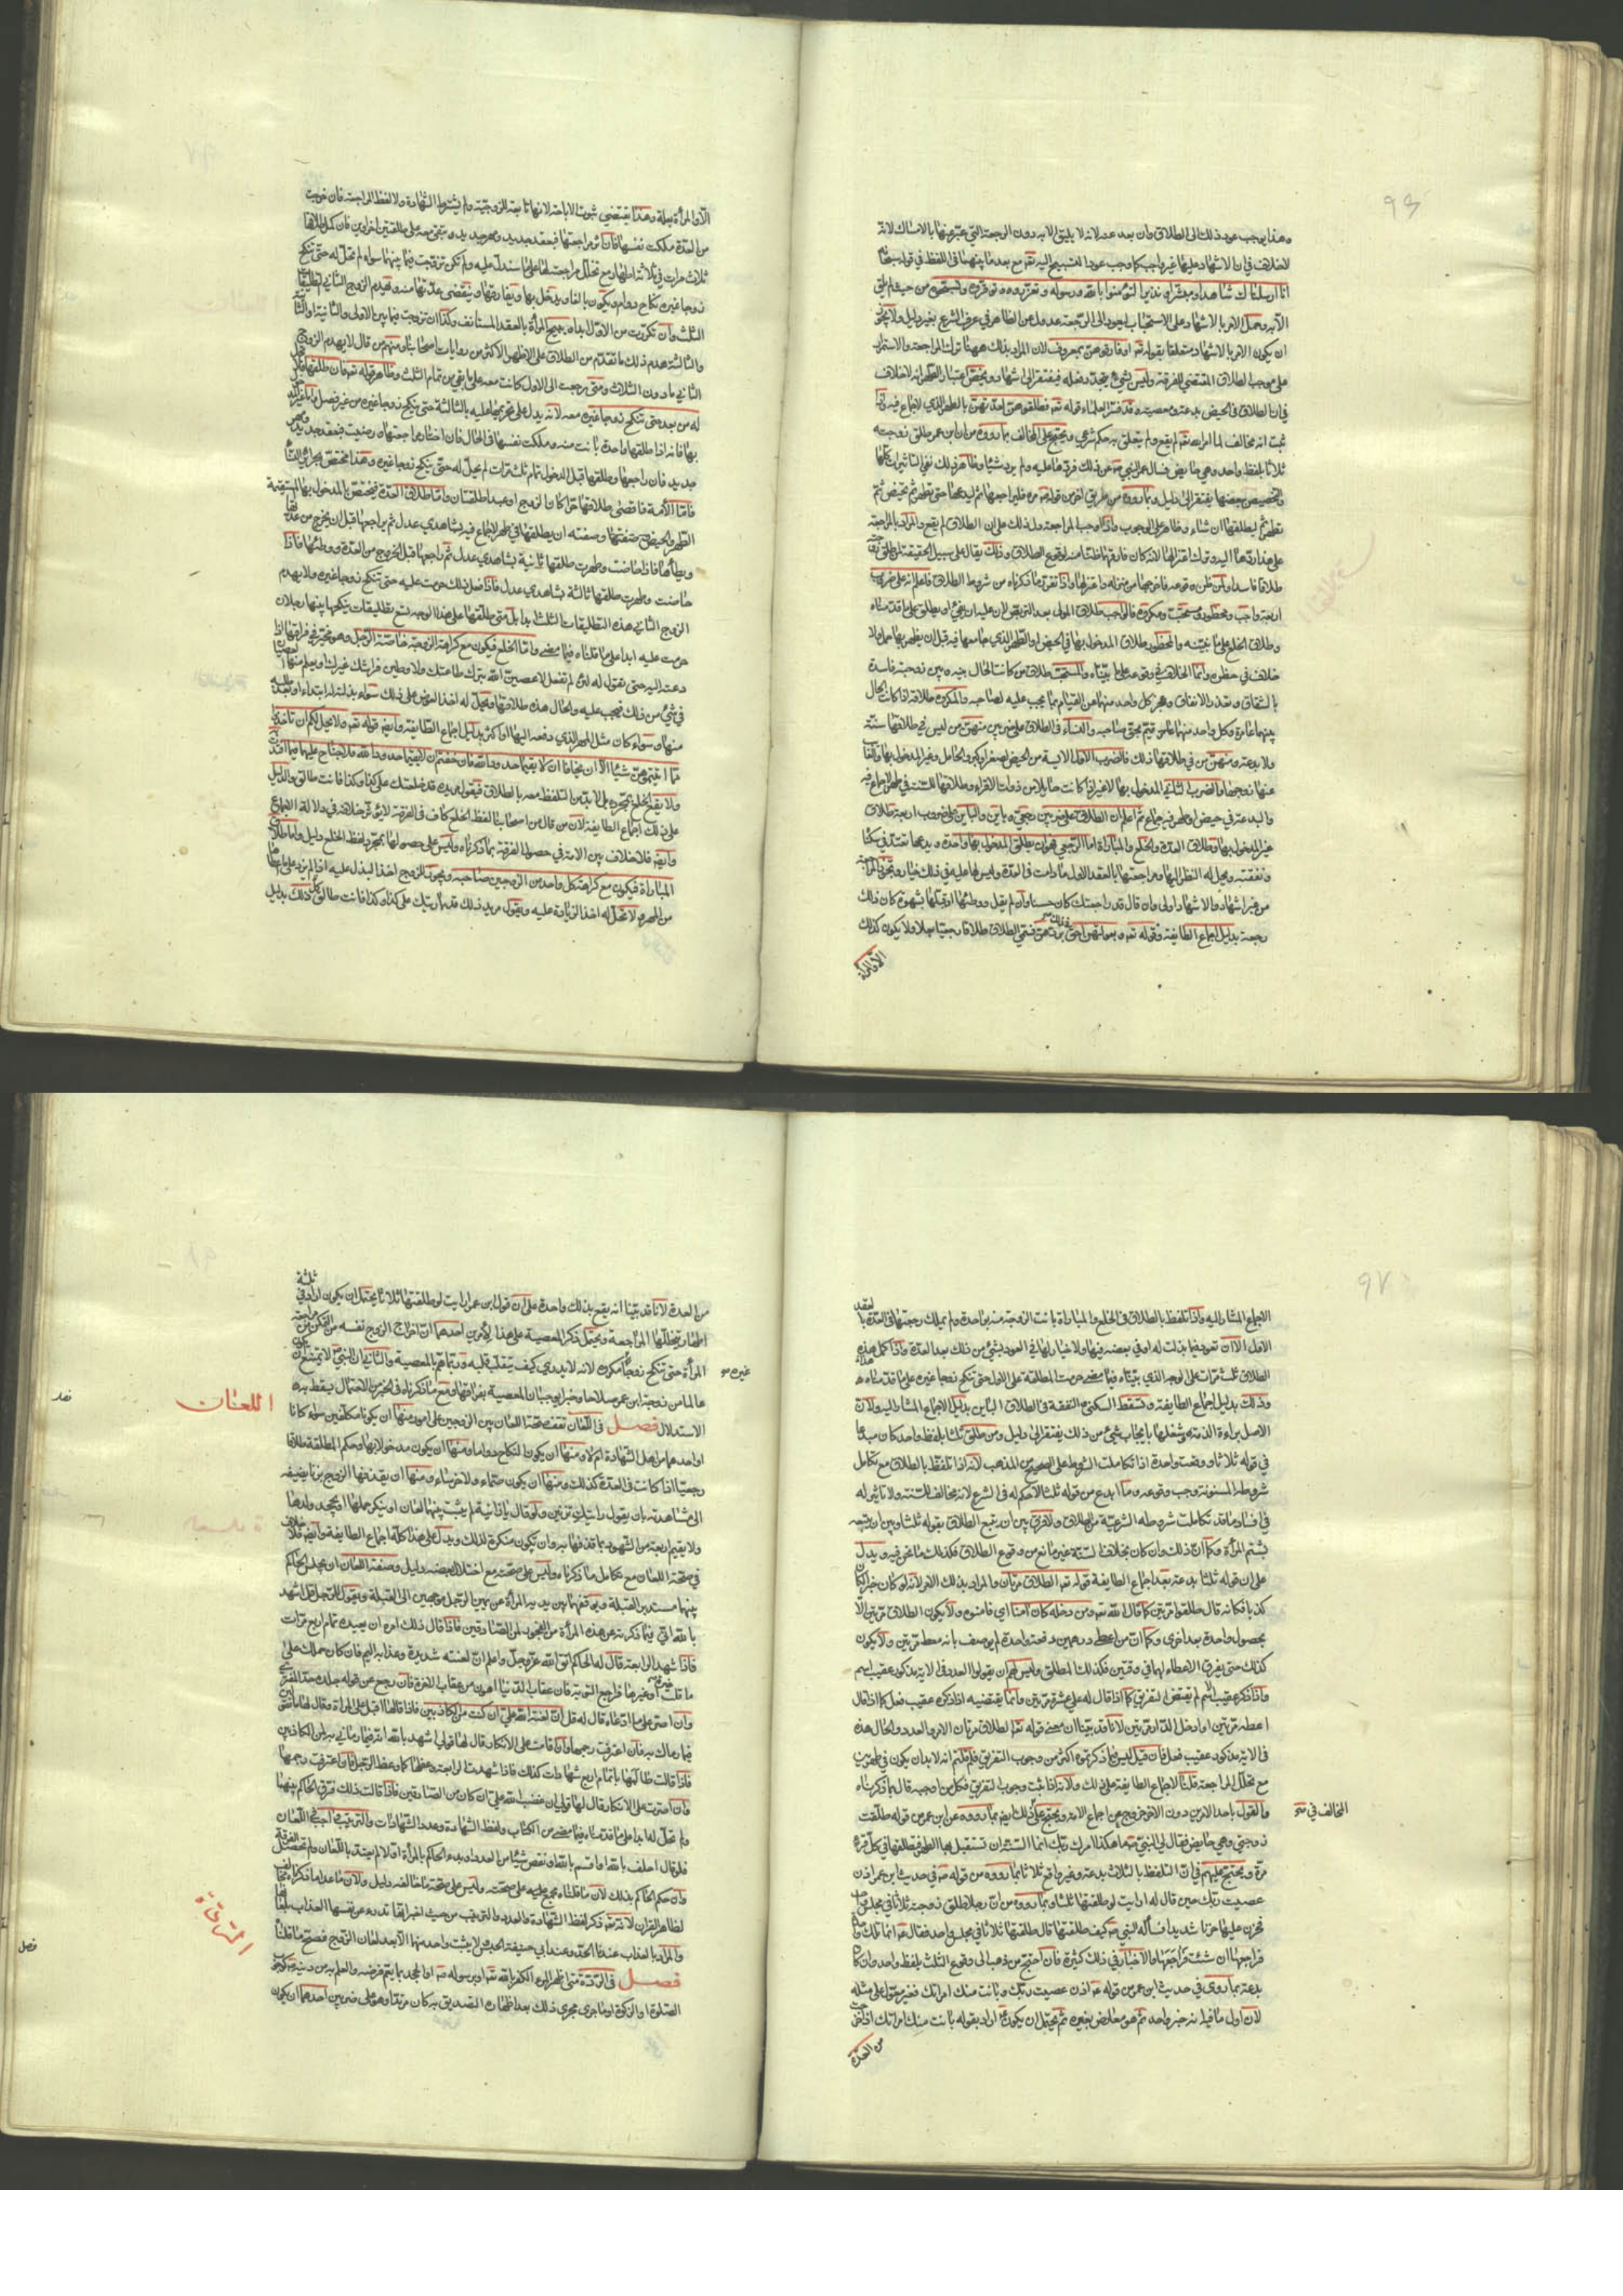 وهذا يوجب عود ذلك الى الطلاق وان بعد عنه لانه لا يليق الا به دون الرجعة التي عبر عنها بالامساك لانه
لا خلاف في ان الاشهاد عليها غير واجب كما وجب عود التسبيح اليه تعالى مع بعد ما بينهما في اللفظ في قوله سبحانه
انا ارسلناك شاهدا ومبشرا ونذيرا لتؤمنوا بالله ورسوله وتعزروه وتوقروه وتسبحوه من حيث لم يلق
الا به وحمل الامر بالاشهاد على الاستحباب ليعود الى الرجعة عدول عن الظاهر في عرف الشرع بغير دليل ولا يجوز
ان يكون الامر بالاشهاد متعلقا بقوله تعالى او فارقوهن بمعروف لان المراد بذلك ههنا ترك المراجعة والاستمرار
على موجب الطلاق المقتضي للفرقة وليس بشيء يتجدد فعله فيفتقر الى اشهاد ويخص اعتبار الطهر انه لا خلاف
في ان الطلاق في الحيض بدعة ومعصية وقد فسر العلماء قوله تعالى فطلقوهن لعدتهن بالطهر الذي لا جماع فيه واذا
ثبت انه مخالف لما امر الله تعالى لم يقع ولم يتعلق به حكم شرعي ويحتج على المخالف بما رووه من ان ابن عمر طلق زوجته
ثلاثا بلفظ واحد وهي حائض فسال عمر النبي ص عن ذلك فردها عليه ولم يره شيئا وظاهر ذلك نفي التاثيرات كلها
والتخصيص ببعضها يفتقر الى دليل وبما رووه من طريق اخر من قوله ص مره فليراجعها ثم ليدعها حتى تطهر ثم تحيض ثم
تطهر ثم ليطلقها ان شاء وظاهر الامر الوجوب واذا وجب المراجعة دل ذلك على ان الطلاق لم يقع والمراد بالمراجعة
على هذا ردها اليه وترك اعتزالها لانه كان فارقها ظنا منه لوقوع الطلاق وذلك يقال على سبيل الحقيقة لمن طلق زوجته
طلاقا فاسدا ولمن ظن وقوعه فاخرجها من منزله واعتزلها واذا تقرر ما ذكرناه من شروط الطلاق فاعلم انه على ضروب
اربعة واجب ومحظور ومستحب ومكروه فالواجب طلاق المولى بعد التربص لان عليه ان يفيء او يطلق على ما قدمناه
وطلاق الخلع على ما نبينه والمحظور طلاق المدخول بها في الحيض او الطهر الذي جامعها فيه قبل ان يظهر بها حمل ولا
خلاف في حظره وانما الخلاف في وقوعه على ما بيناه والمستحب طلاق من كانت الحال بينه وبين زوجته فاسدة
بالشقاق وتعذر الانفاق وعجز كل واحد منهما عن القيام بما يجب عليه لصاحبه والمكروه طلاقه اذا كانت الحال
بينهما عامرة وكل واحد منهما قائم بحق صاحبه والنساء في الطلاق على ضربين منهن من ليس في طلاقها سنة
ولا بدعة ومنهن من في طلاقها ذلك فالضرب الاول الايسة من الحيض لصغر او كبر والحامل وغير المدخول بها والغائب
عنها زوجها والضرب الثاني المدخول بها لا غير اذا كانت حائلا من ذوات الاقراء وطلاقها للسنة في طهر لا جماع فيه
والبدعة في حيض او طهر فيه جماع ثم اعلم ان الطلاق على ضربين رجعي وباين والباين على ضروب اربعة طلاق
غير المدخول بها وطلاق العدة والخلع والمباراة اما الرجعي فهو ان يطلق المدخول بها واحدة ويدعها تعتد في سكناه
ونفقته ويحل له النظر اليها ومراجعتها بالعقد الاول ما دامت في العدة وليس لها عليه في ذلك خيار وتجوز المراجعة
من غير اشهاد والاشهاد اولى وان قال قد راجعتك كان حسنا وان لم يقل ووطئها او قبلها بشهوة كان ذلك
رجعة بدليل اجماع الطايفة وقوله تعالى وبعولتهن احق بردهن في ذلك فسمى الطلاق طلاقا رجعيا بعلا ولا يكون كذلك
الا والمراة
الا والمرأة بعلة وهذا يقتضي ثبوت الاباحة لانها تابعة للزوجية ولم يشترط الشهادة ولا لفظ المراجعة فان خرجت
من العدة ملكت نفسها فان اثر مراجعتها فبعقد جديد ومهر جديد وتبقى معه على طلقتين اخراوين فان كمل طلاقها
ثلاث مرات في ثلاثة اطهار مع تخلل مراجعته لها على ما سندل عليه ولم تكن تزوجت فيما بينها سواه لم تحل له حتى تنكح
زوجا غيره نكاح دوام ويكون بالغا ويدخل بها ويفارقها وتنقضي عدتها منه ويهدم الزوج الثاني التطليقات
الثلث وان تكررت من الاول ابدا ويبيح المرأة بالعقد المستانف وكذا ان تزوجت فيما بين الاولى والثانية او الثانية
والثالثة هدم ذلك ما تقدم من الطلاق على الاظهر الاكثر من روايات اصحابنا ومنهم من قال لا يهدم الزوج
الثاني ما دون الثلاث ومتى رجعت الى الاول كانت معه على ما بقي من تمام الثلث وظاهر قوله تعالى فان طلقها فلا تحل
له من بعد حتى تنكح زوجا غيره معه لانه يدل على تحريمها عليه بالثالثة حتى ينكح زوجا غيره من غير فصل واما غير المدخول
بها فانه اذا طلقها واحدة بانت منه وملكت نفسها في الحال فان اختار مراجعتها ورضيت فبعقد جديد ومهر
جديد فان راجعها وطلقها قبل الدخول تمام ثلث مرات لم تحل له حتى ينكح زوجا غيره وهذا مختص بحرائر النساء
فاما الأمة فاقصى طلاقها حرا كان الزوج او عبدا طلقتان واما طلاق العدة فيختص المدخول بها المستقيمة
الطهر والحيض وصفتها وصفته ان يطلقها في طهر لا جماع فيه بشاهدي عدل ثم يراجعها قبل ان يخرج من عدتها
ويطأها فاذا حاضت وطهرت طلقها ثانية بشاهدي عدل ثم راجعها قبل الخروج من العدة ووطئها فاذا
حاضت وطهرت طلقها ثالثة بشاهدي عدل فاذا فعل ذلك حرمت عليه حتى تنكح زوجا غيره ولا يهدم
الزوج الثاني هذه التطليقات الثلث ابدا بل متى طلقها على هذا الوجه تسع تطليقات ينكحها بينها رجلان
حرمت عليه ابدا على ما قلناه فيما مضى واما الخلع فيكون مع كراهة الزوجة خاصة الرجل وهو مخير في فراقها اذا
دعته اليه حتى تقول له لئن لم تفعل لاعصين الله بترك طاعتك ولاوطين فراشك غيرك او يعلم منها العصيان
في شيء من ذلك فيجب عليه والحال هذه طلاقها ويحل له اخذ العوض على ذلك سواء بذلته له ابتداء او بعد طلبه
منها وسواء كان مثل المهر الذي دفعه اليها او اكثر بدليل اجماع الطائفة وايضا قوله تعالى ولا يحل لكم ان تأخذوا
مما اتيتموهن شيئا الا ان يخافا ان لا يقيما حدود الله فان خفتم ان لا يقيما حدود الله فلا جناح عليهما فيما افتدت
ولا يقع الخلع بمجرده بل لا بد من التلفظ معه بالطلاق فيقول مريده قد خلعتك على كذا وكذا فانت طالق والدليل
على ذلك اجماع الطايفة لان من قال من اصحابنا لفظ الخلع كاف في الفرقة لا يؤثر خلافه في دلالة الاجماع
وايضا فلا خلاف بين الامة في حصول الفرقة بما ذكرناه وليس على حصولها بمجرد لفظ الخلع دليل واما طلاق
المباراة فيكون مع كراهة كل واحد من الزوجين صاحبه ويجوز للزوج اخذ البذل عليه اذا لم يزد على ما اعطاها
من المهر ولا تحل له اخذ الزيادة عليه ويقول مريد ذلك قد بارئتك على كذا وكذا فانت طالق كل ذلك بدليل
الاجماع المشار اليه واذا تلفظ بالطلاق في الخلع والمباراة بانت الزوجة منه بواحدة ولم يملك رجعتها في العدة بالعقد
الاول الا ان تعود فيما بذلت له او في بعضه فيها ولا خيار لها في العود بشيء من ذلك بعد العدة واذا كمل هذا
الطلاق ثلث مرات على الوجه الذي بيناه فيما مضى حرمت المطلقة على الاول حتى تنكح زوجا غيره على ما قدمناه
وذلك بدليل اجماع الطايفة وتسقط السكنى والنفقة في الطلاق الباين بدليل الاجماع المشار اليه ولان
الاصل براءة الذمة وشغلها بايجاب شيء من ذلك يفتقر الى دليل ومن طلق ثلثا بلفظ واحد كان مبدعا
في قوله ثلاثا ووقعت واحدة اذا تكاملت الشروط على الصحيح من المذهب لانه اذا تلفظ بالطلاق مع تكامل
شروطه المسنونة وجب وقوعه وما ابدع من قوله ثلثا لا حكم له في الشرع لانه مخالف للسنة ولا تاثير له
في افساد ما قد تكاملت شروطه الشرعية من الطلاق ولا فرق بين ان يتبع الطلاق بقوله ثلثا وبين ان يتبعه
بشتم المرأة وكما ان ذلك وان كان بخلاف السنة غير مانع من وقوع الطلاق فكذلك ما نحن فيه ويدل
على ان قوله ثلثا بدعة بعد اجماع الطايفة قوله تعالى الطلاق مرتان والمراد بذلك الامر لانه لو كان خبرا لكان
كذبا فكانه قال طلقوا مرتين كما قال الله تعالى ومن دخله كان آمنا اي فامنوه ولا يكون الطلاق مرتين الا
بحصول واحدة بعد اخرى وكما ان من اعطى درهمين دفعة واحدة لم يوصف بانه معط مرتين ولا يكون
كذلك حتى يفرق الاعطاء لهما في وقتين فكذلك المطلق وليس لهم ان يقولوا العدد في الاية مذكور عقيب اسم
واذا ذكر عقيب اسم لم يقتض التفريق كما اذا قال له علي عشرة مرتين وانما يقتضيه اذا ذكر عقيب فعل كما اذا قال
اعطه مرتين او ادخل الدار مرتين لانا قد بينا ان معنى قوله تعالى الطلاق مرتان الامر والعدد والحال هذه
في الاية مذكور عقيب فعل فان قيل ليس فيما ذكرتموه اكثر من وجوب التفريق فلم قلتم انه لا بد ان يكون في طهرين
مع تخلل المراجعة قلنا لاجماع الطايفة على ذلك ولانه اذا ثبت وجوب التفريق فكل من اوجبه قال بما ذكرناه
والقول باحد الامرين دون الاخر خروج عن اجماع الامة ويحتج على المخالف في ذلك ايضا بما رووه عن ابن عمر من قوله طلقت
المخالف في صح
زوجتي وهي حايض فقال لي النبي ص ما هكذا امرك ربك انما السنة ان تستقبل بها الطهر فتطلقها في كل قرء
مرة ويحتج عليهم في ان التلفظ بالثلاث بدعة وغير واقع ثلاثا بما رووه من قوله ص في حديث ابن عمر اذن
عصيت ربك حين قال له ارايت لو طلقتها ثلثا وبما رووه من ان رجلا طلق زوجته ثلاثا في مجلس واحد
فحزن عليها حزنا شديدا فساله النبي ص كيف طلقتها قال طلقتها ثلاثا في مجلس واحد فقال ص انما تلك واحدة
فراجعها ان شئت فراجعها والاخبار في ذلك كثيرة فان احتج من ذهب الى وقوع الثلث بلفظ واحد وان كان
بدعة بما روي في حديث ابن عمر من قوله ص اذن عصيت ربك وبانت منك امراتك فغير معول على مثله
لان اول ما فيه انه خبر واحد ثم هو معارض بغيره ثم يحتمل ان يكون ص اراد بقوله بانت منك امراتك اذا خرجت
من العدة
من العدة لانا قد بينا انه يقع بذلك واحدة على ان قول ابن عمر ارايت لو طلقتها ثلاثا يحتمل ان يكون اراد في ثلثة
اطهار تخللها المراجعة ويحتمل ذكر المعصية على هذا لامرين احدهما ان اخراج الزوج نفسه من التمكن من مراجعة
المرأة حتى تنكح زوجا غيره مكروه لانه لا يدري كيف يتقلب قلبه وربما هم بالمعصية والثاني ان النبي لا يمتنع ان يكون
غيره صح
عالما من زوجة ابن عمر صلاحا وخيرا يوجبان المعصية بفراقها ومع ما ذكرناه في الخبر من الاحتمال يسقط به
الاستدلال فصل في اللعان تقف صحة اللعان بين الزوجين على امور منها ان يكونا مكلفين سواء كانا
اللعان
فصل
او احدهما من اهل الشهادة ام لا ومنها ان يكون النكاح دواما ومنها ان يكون مدخولا بها وحكم المطلقة طلاقا
رجعيا اذا كانت في العدة كذلك ومنها ان يكون صماء ولا خرساء ومنها ان يقذفها الزوج بزنا يضيفه
الى مشاهدته بان يقول رايتك تزنين ولو قال يا زانية لم يثبت بينهما لعان او ينكر حملها او يجحد ولدها
ولا يقيم اربعة من الشهود بما قذفها به وان تكون منكرة لذلك ويدل على هذا كله اجماع الطايفة وايضا فلا خلاف
في صحة اللعان مع تكامل ما ذكرناه وليس على صحته مع اختلال بعضه دليل وصفة اللعان ان يجلس الحاكم
بينهما مستدبر القبلة ويوقفهما بين يديه المرأة عن يمين الرجل موجهين الى القبلة ويقول للرجل قل اشهد
بالله اني فيما ذكرته عن هذه المرأة من الفجور لمن الصادقين فاذا قال ذلك امره ان يعيده تمام اربع مرات
فاذا شهد الرابعة قال له الحاكم اتق الله عز وجل واعلم ان لعنته شديدة وعذابه اليم فان كان حملك على
ما قلت غيرة او غيرها فراجع التوبة فان عقاب الدنيا اهون من عقاب الاخرة فان رجع عن قوله جلده حد المفتري
وان اصر على ما ادعاه قال له قل ان لعنة الله علي ان كنت من الكاذبين فاذا قالها اقبل على المرأة وقال لها ما تقولين
فيما رماك به فان اعترفت رجمها وان قامت على الانكار قال لها قولي اشهد بالله انه فيما رماني به لمن الكاذبين
فاذا قالت طالبها باتمام اربع شهادات كذلك فاذا شهدت الرابعة وعظها كما وعظ الرجل فان اعترفت رجمها
وان اصرت على الانكار قال لها قولي ان غضب الله علي ان كان من الصادقين فاذا قالت ذلك فرق الحاكم بينهما
ولم تحل له ابدا على ما قدمناه فيما مضى من الكتاب ولفظ الشهادة وعدد الشهادات والترتيب واجب في اللعان
فلو قال احلف بالله او اقسم بالله او نقص شيئا من العدد او بدء الحاكم بالمرأة اولا لم يعتد باللعان ولم تحصل الفرقة
وان حكم الحاكم بذلك لان ما قلناه مجمع عليه على صحته وليس على صحة ما خالفه دليل ولان ما عدا ما ذكرناه مخالف
لظاهر القران لانه تعالى ذكر لفظ الشهادة والعدد والترتيب من حيث اخبر انها تدرء عن نفسها العذاب بلعانها
والمراد بالعذاب عندنا الحد وعند ابي حنيفة الحبس ولا يثبت واحد منهما الا بعد لعان الزوج فصح ما قلناه
الردة
فصل
فصل في الردة متى اظهر المرء الكفر بالله تعالى او برسوله ص او الجحد بما يعم فرضه والعلم به من دينه كوجوب
الصلوة او الزكوة او ما جرى مجرى ذلك بعد اظهاره التصديق به كان مرتدا وهو على ضربين احدهما ان يكون